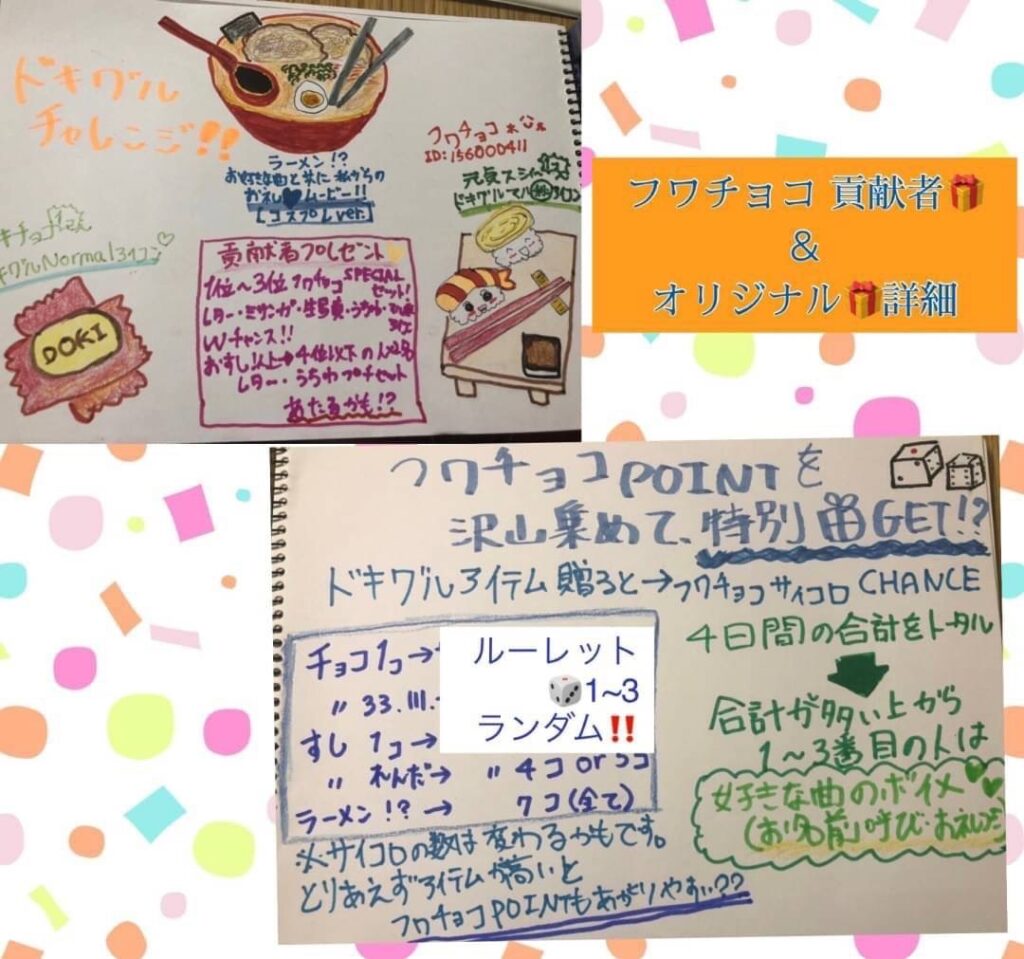 ドキワル
チャレンジ!!
ラーメン!?
お好きな曲と共に私からの
お礼♥ムービー!!
【コスプレver.】
フワチョコ
ID:156000411
元気スシ
ドキワル
Normalアイコン♡
DOKI
貢献者プレゼント
1位〜3位 フワチョコSPECIALセット!
レター・ミサンガ・生写真・うちわ
Wチャンス!!
おすし以上→4位以下の人
レター・うちわプチセット
あたるかも!?
フワチョコ 貢献者🎁
&
オリジナル🎁詳細
フワチョコPOINTを
沢山集めて、特別🎁GET!?
ドキワルアイテム贈ると→フワチョコサイコロ CHANCE
チョコ1コ→
〃 33.111.
すし 1コ→
〃 れんだ→ 〃 4コ or 5コ
ラーメン!? → 7コ(全て)
ルーレット
🎲1~3
ランダム‼️
※サイコロの数は変わるかもです。
とりあえずアイテムが高いと
フワチョコPOINTもあがりやすい??
4日間の合計をトータル
合計が多い上から
1〜3番目の人は
好きな曲のボイメ
(お名前呼び・お礼